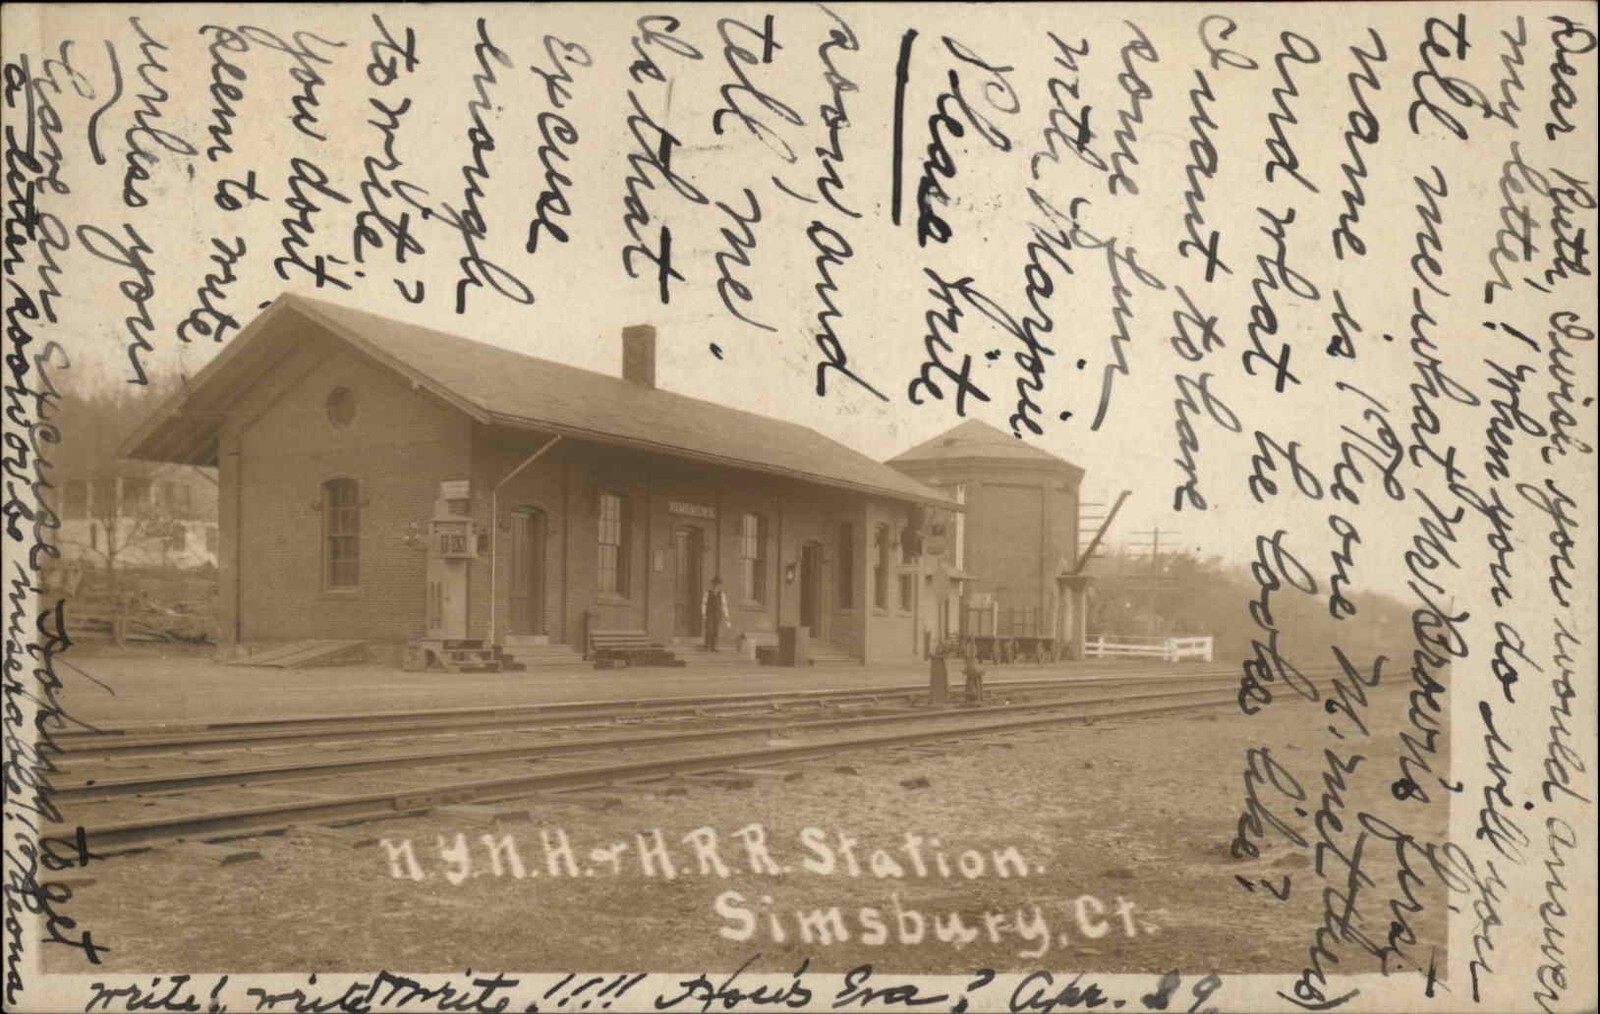 Dear Ruth, I wish you would answer
my letter! When you do will you
tell me what Mr. Brown's first
name is (The one M. met thus)
and what he looks like?
I want to have
some fun
with Marjorie
Please write
soon and
tell me.
Is that
Excuse
enough
to write?
You don't
seem to write
unless you
have an Excuse. Hoping to get
a letter soon or be miserable! Theona
write! write! write!!!!! How's Eva? Apr. 29
SIMSBURY
N.Y.N.H. & H.R.R. Station.
Simsbury, Ct.